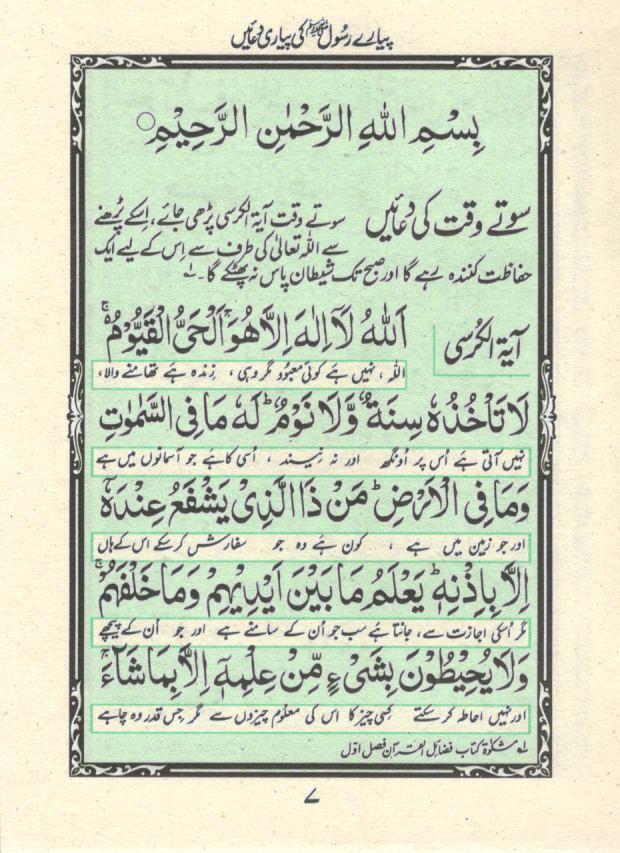 پیارے رسُول ﷺ کی پیاری دعائیں
بِسْمِ اللهِ الرَّحْمٰنِ الرَّحِيْمِ○
سوتے وقت کی دعائیں سوتے وقت آیۃ الکرسی پڑھی جائے، اِسکے پڑھنے
سے اللہ تعالیٰ کی طرف سے اِس کے لیے ایک
حفاظت کنندہ رہے گا اور صبح تک شیطان پاس نہ پھٹکے گا۔ لہ
آیۃ الکرُسی اَللهُ لَآ اِلٰهَ اِلَّا هُوَ ۚ اَلْحَيُّ الْقَيُّوْمُ ۚ
اللہ ، نہیں ہے کوئی معبُود مگر وہی ، زندہ ہے تھامنے والا،
لَا تَاْخُذُهٗ سِنَةٌ وَّلَا نَوْمٌ ؕ لَهٗ مَا فِى السَّمٰوٰتِ
نہیں آتی ہے اُس پر اُونگھ اور نہ نیند ، اُسی کا ہے جو آسمانوں میں ہے
وَمَا فِى الْاَرْضِ ؕ مَنْ ذَا الَّذِىْ يَشْفَعُ عِنْدَهٗٓ
اور جو زمین میں ہے ، کون ہے وہ جو سفارش کرسکے اس کے ہاں
اِلَّا بِاِذْنِهٖ ؕ يَعْلَمُ مَا بَيْنَ اَيْدِيْهِمْ وَمَا خَلْفَهُمْ ۚ
مگر اُسکی اجازت سے، جانتا ہے سب جو اُن کے سامنے ہے اور جو اُن کے پیچھے
وَلَا يُحِيْطُوْنَ بِشَىْءٍ مِّنْ عِلْمِهٖٓ اِلَّا بِمَا شَآءَ ۚ
اور نہیں احاطہ کرسکتے کسی چیز کا اس کی معلوم چیزوں سے مگر جس قدر وہ چاہے
لہ مشکوٰۃ کتاب فضائل القرآن فصل اوّل
۷